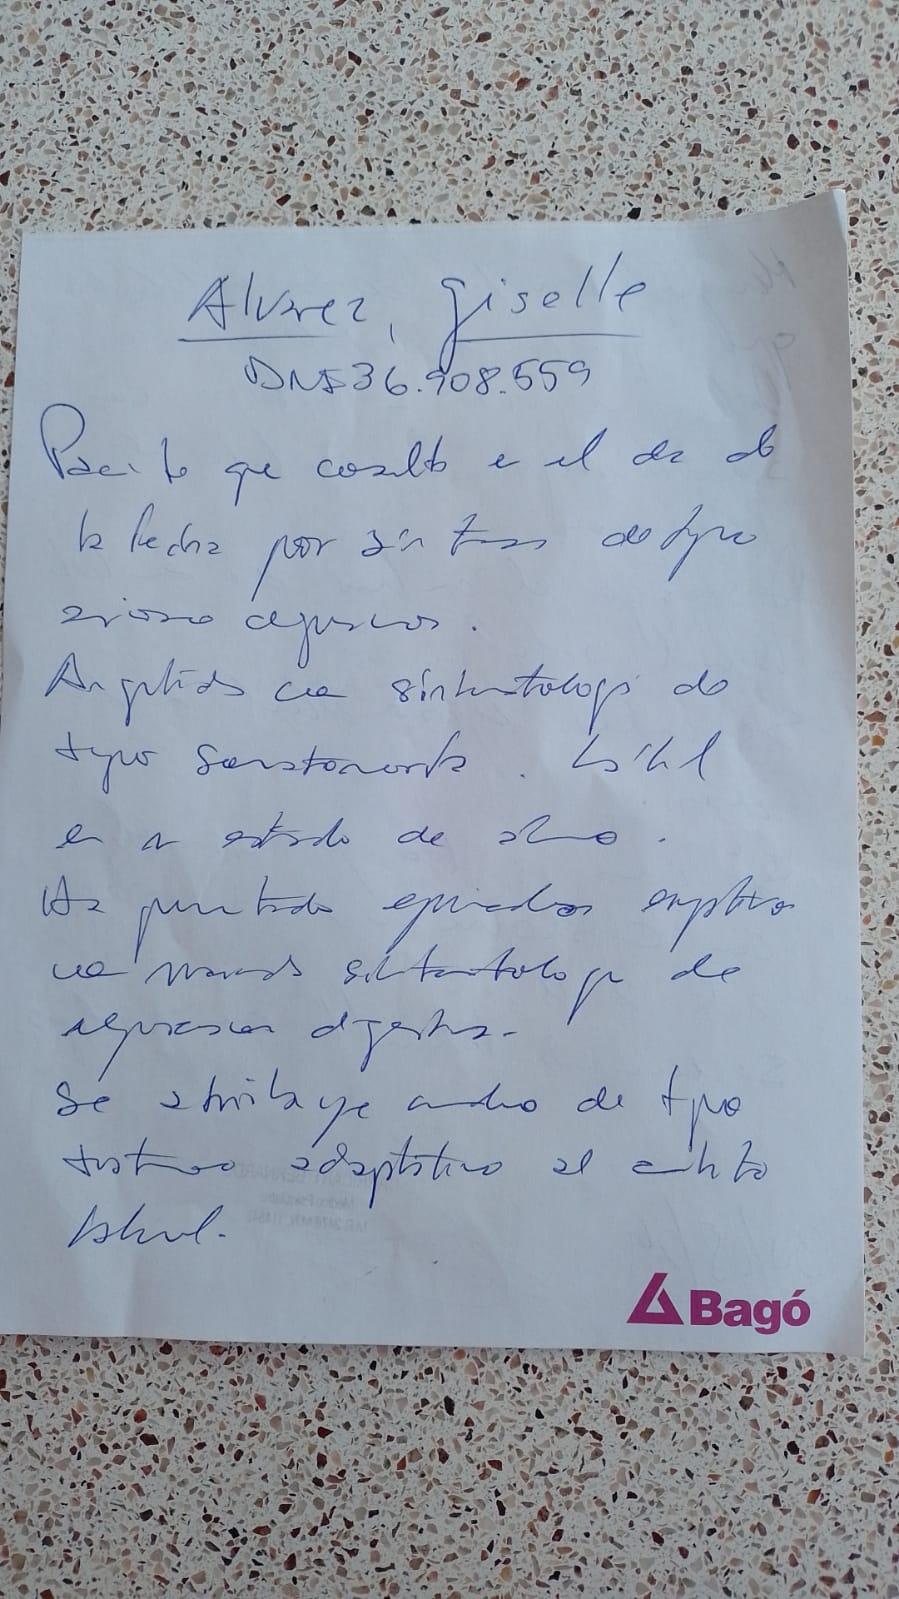 Alvarez, Giselle
DNI 36.908.559
Paciente que consulta en el día de
la fecha por síntomas de tipo
ansioso depresivos.
Angustiada con sintomatología de
tipo somatomorfa. Lábil
en su estado de ánimo.
Ha presentado episodios
con marcada sintomatología de
digestiva.
Se atribuye cuadro de tipo
trastorno adaptativo al ámbito
laboral.
Bagó